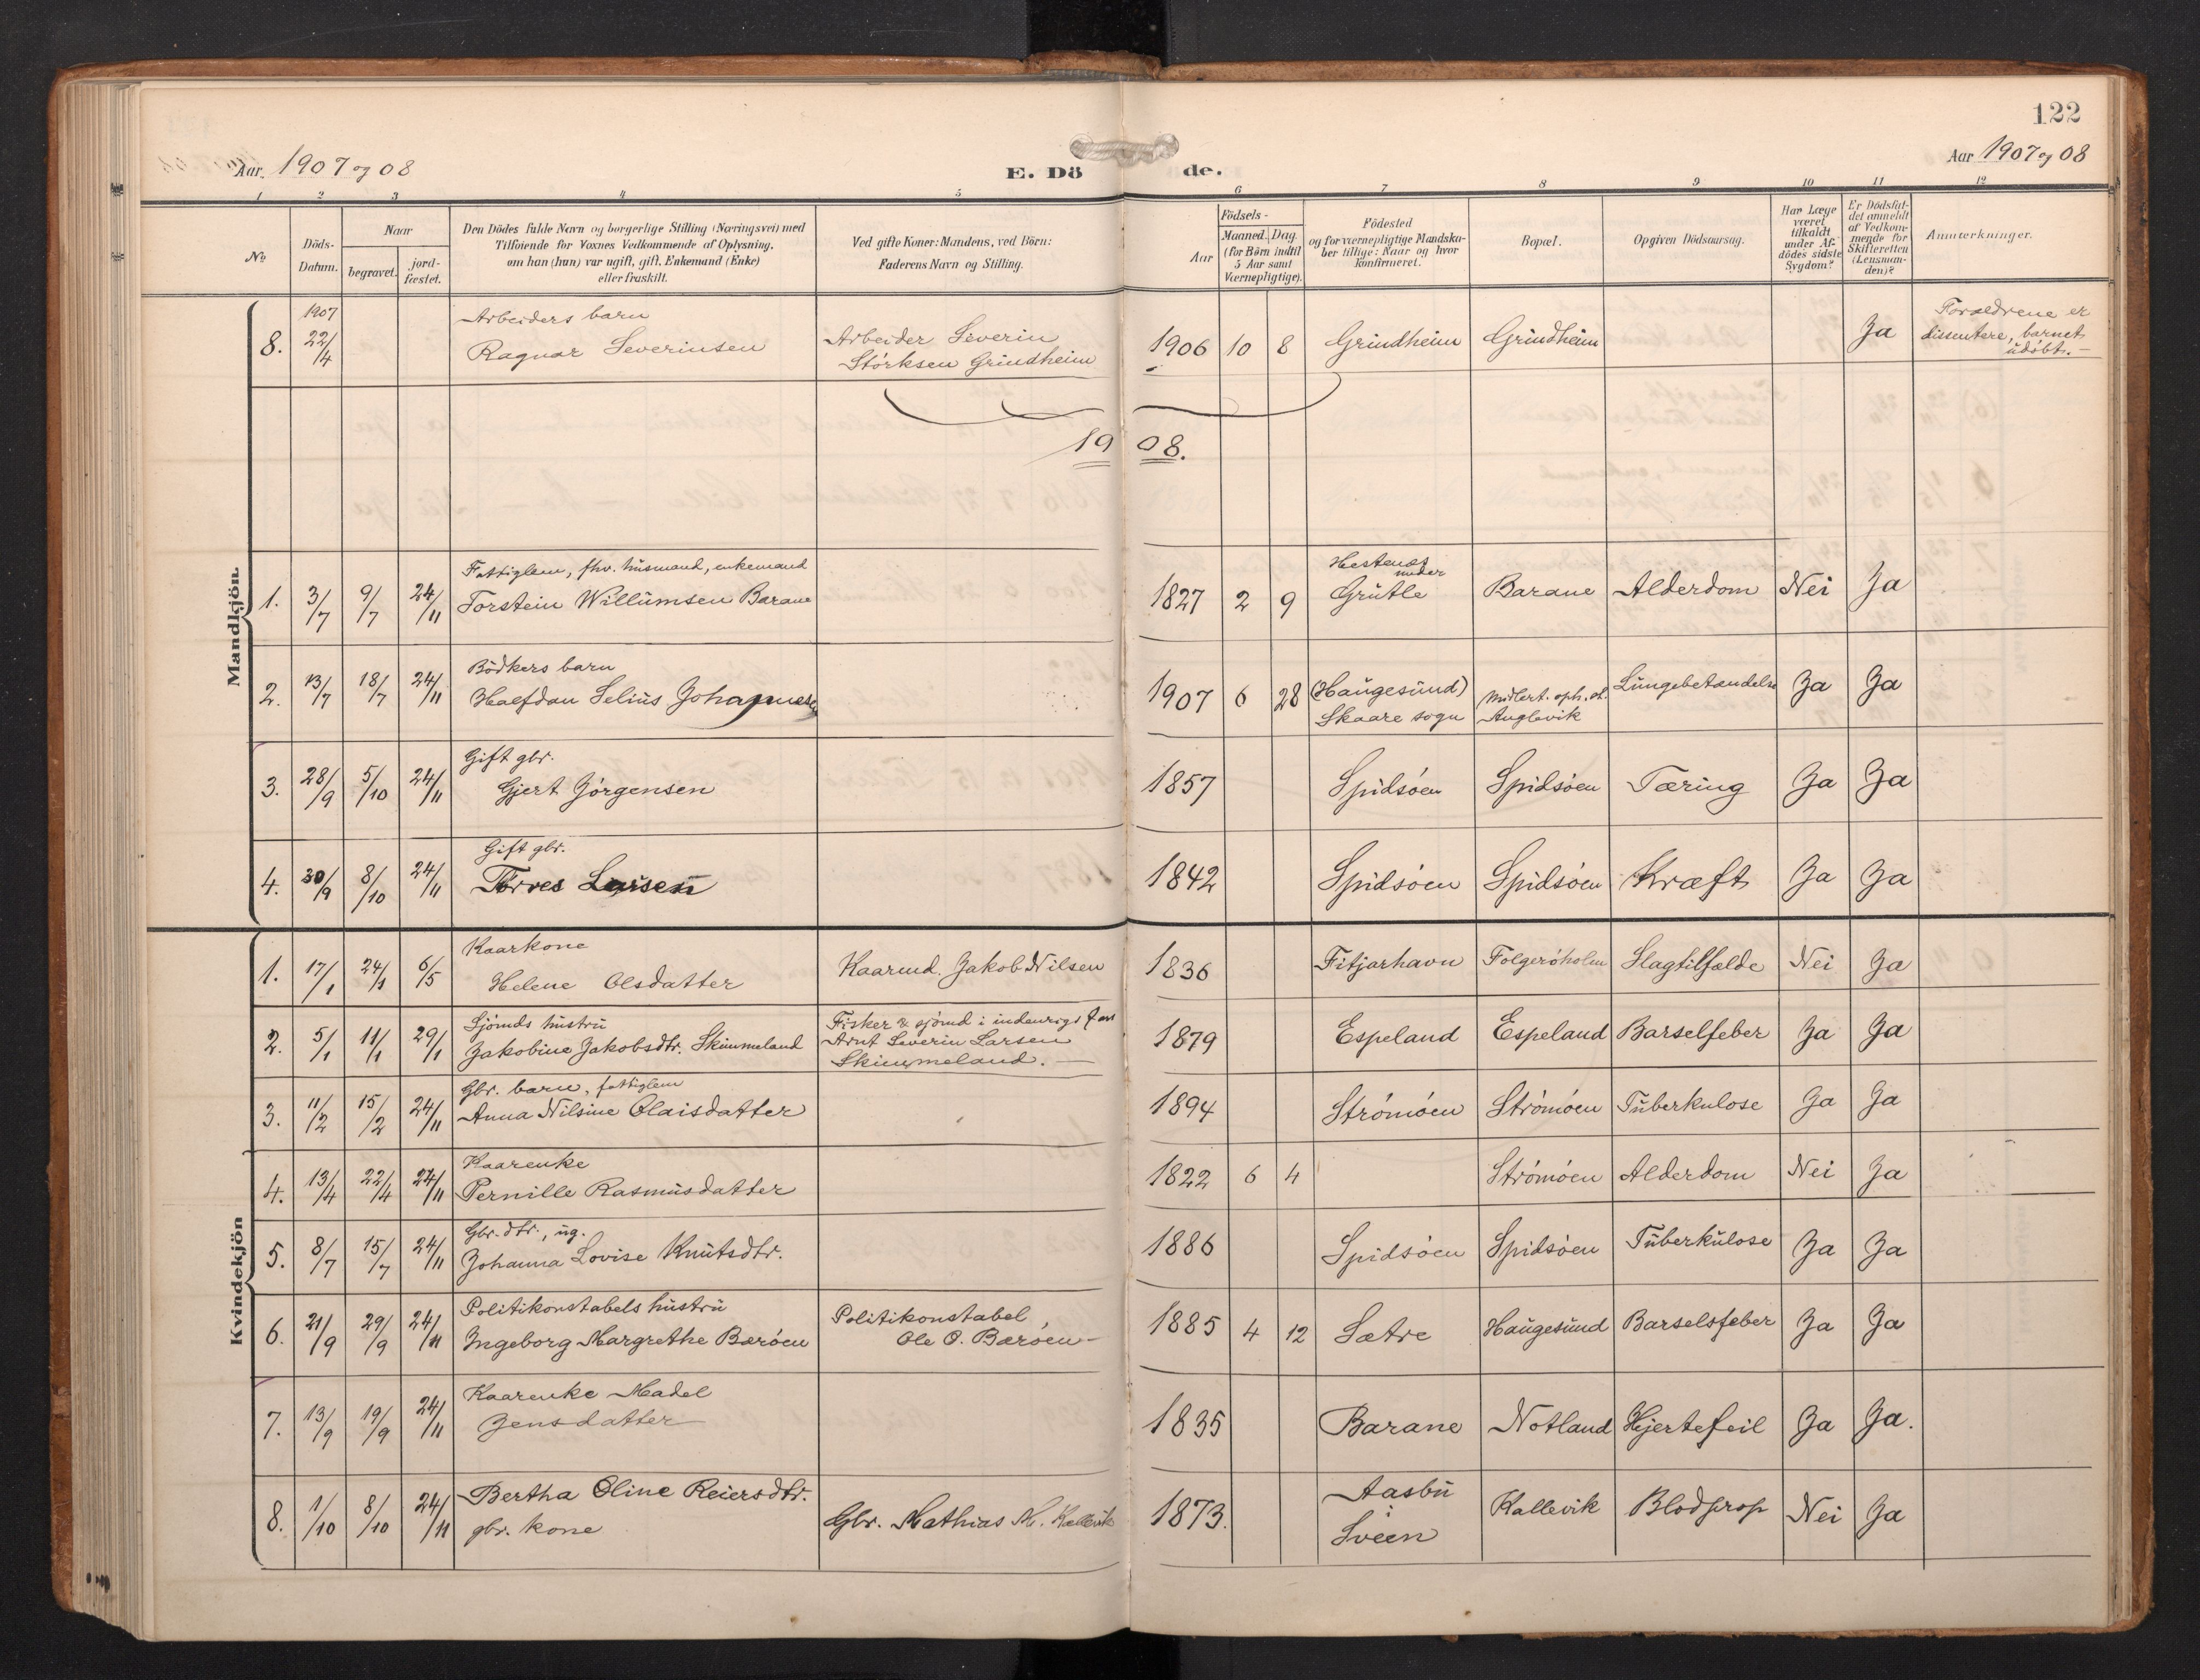 122
Aar 1907 og 08
E. Dö de.
Aar 1907 og 08
1 2 3 4 5 6 7 8 9 10 11 12
No
Döds-Datum.
Naar
begravet.
jord-fæstet.
Den Dödes fulde Navn og borgerlige Stilling (Næringsvei) med
Tilföiende for Voxnes Vedkommende af Oplysning,
om han (hun) var ugift, gift, Enkemand (Enke)
eller fraskilt.
Ved gifte Koner: Mandens, ved Börn:
Faderens Navn og Stilling.
Födsels-
Aar
Maaned. Dag
(for Börn indtil
5 Aar samt
Værnepligtige).
Födested
og for værnepligtige Mandska-
ber tillige: Naar og hvor
konfirmeret.
Bopæl.
Opgiven Dödsaarsag.
Har Læge
været
tilkaldt
under Af-
dödes sidste
Sygdom?
Er Dödsfal-
det anmeldt
af Vedkom-
mende for
Skifteretten
(Lensman-
den)?
Anmerkninger.
Mandkjön.
8. 1907 22/4 Arbeiders barn
Ragnar Severinsen
Arbeider Severin
Störksen Grindheim
1906 10 8 Grindheim Grindheim Ja
Forældrene er
dissentere, barnet
udöbt.
1908.
1. 3/7 9/7 24/11 Fattiglem, fhv. husmand, enkemand
Torstein Willumsen Barane
1827 2 9 Hestenes under
Grutle
Barane Alderdom Nei Ja
2. 13/7 18/7 24/11 Bödkers barn
Halfdan Selius Johannesen
1907 6 28 (Haugesund)
Skaare sogn
Midlert. oph. st.
Anglevik
Lungebetændelse Ja Ja
3. 28/9 5/10 24/11 Gift gbr.
Gjert Jörgensen
1857 Spidsöen Spidsöen Tæring Ja Ja
4. 30/9 8/10 24/11 Gift gbr.
Törres Larsen
1842 Spidsöen Spidsöen Kræft Ja Ja
Kvindekjön
1. 17/1 24/1 6/5 Kaarkone
Helene Olsdatter
Kaarmd. Jakob Nilsen
1836 Fitjarhavn Folgeröholm Slagtilfælde Nei Ja
2. 5/1 11/1 29/1 Sjömds hustru
Jakobine Jakobsdtr. Skimmeland
Fisker & sjömd i indenrigs fart
Arnt Severin Larsen
Skimmeland.
1879 Espeland Espeland Barselfeber Ja Ja
3. 11/2 15/2 24/11 Gbr. barn, fattiglem
Anna Nilsine Olaisdatter
1894 Strömöen Strömöen Tuberkulose Ja Ja
4. 13/4 22/4 24/11 Kaarenke
Pernille Rasmusdatter
1822 6 4 Strömöen Alderdom Nei Ja
5. 8/7 15/7 24/11 Gbr. dtr., ug.
Johanna Lovise Knutsdtr.
1886 Spidsöen Spidsöen Tuberkulose Ja Ja
6. 21/9 29/9 24/11 Politikonstabels hustru
Ingeborg Margrethe Baröen
Politikonstabel
Ole O. Baröen
1885 4 12 Sætre Haugesund Barselsfeber Ja Ja
7. 13/9 19/9 24/11 Kaarenke Madel
Jensdatter
1835 Barane Notland Hjertefeil Ja Ja.
8. 1/10 8/10 24/11 Bertha Oline Reiersdtr.
gbr. kone
Gbr. Mathias M. Kallevik
1873. Aasbu
i Sveen
Kallevik Blodprop Nei Ja